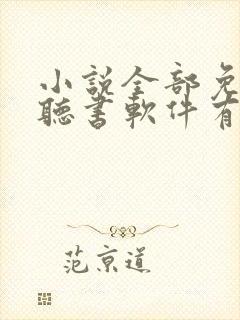 小說全部免
聽書軟件有
范京道